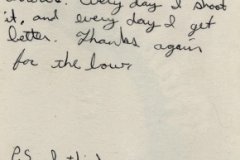 Every day I shoot
it, and every day I get
better. Thanks again
for the bow,
P.S.